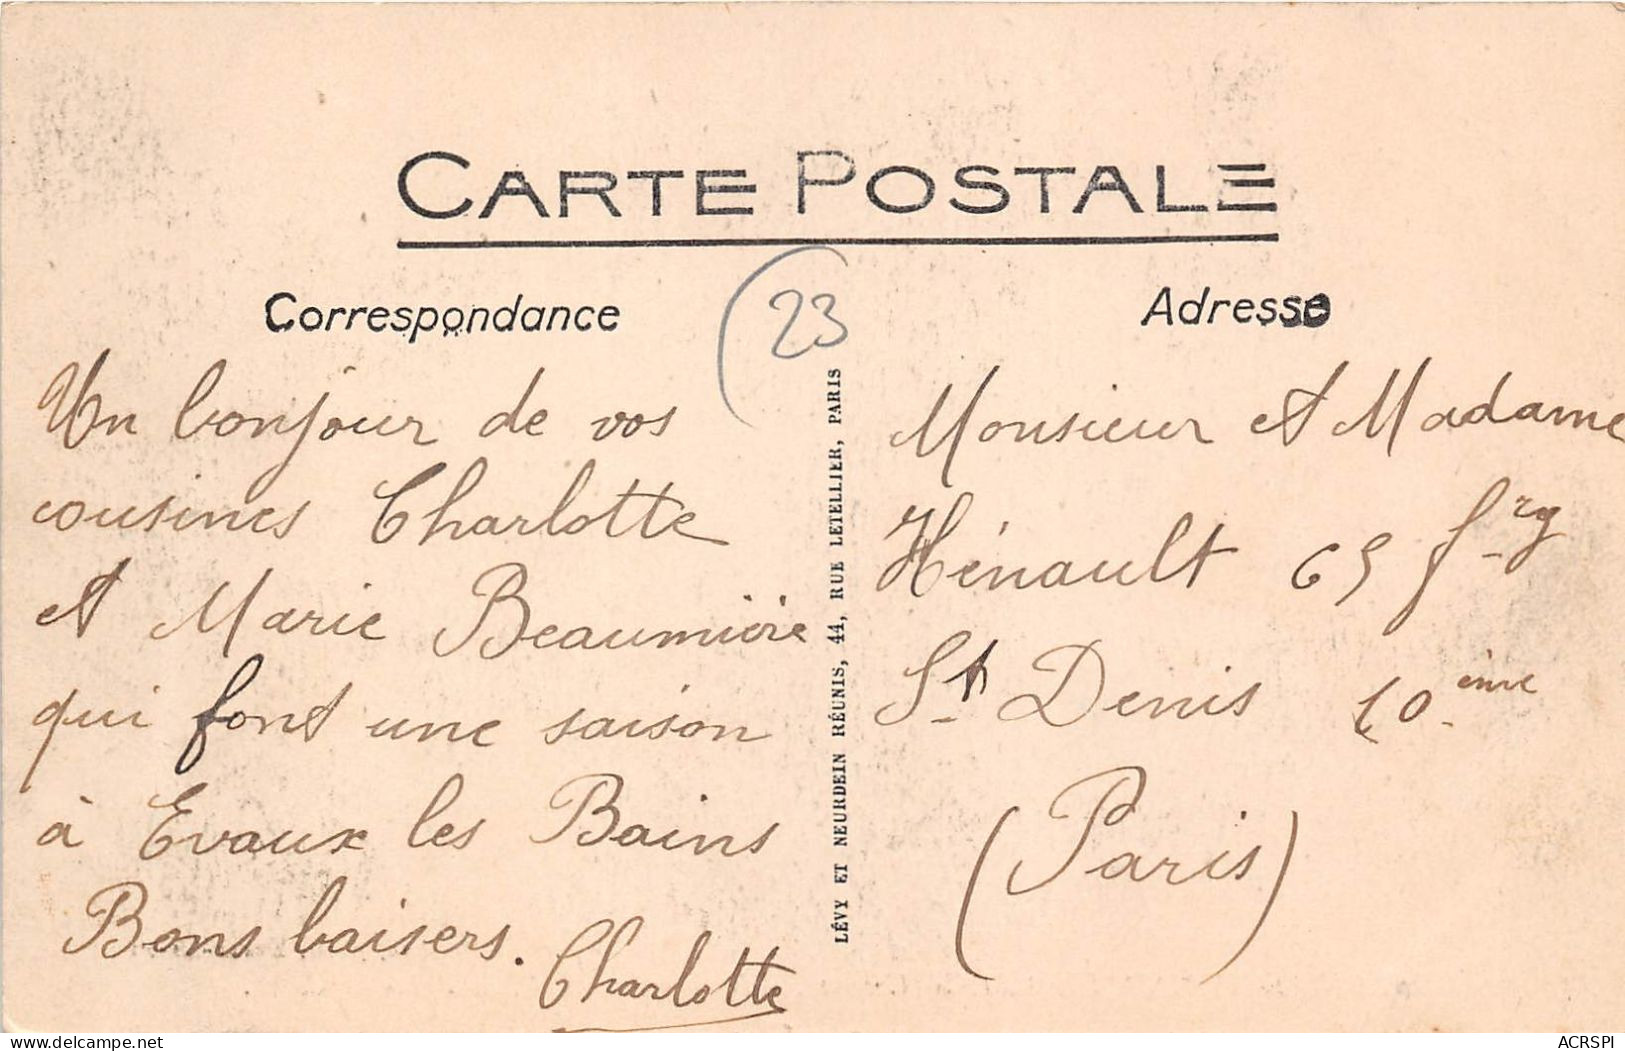 CARTE POSTALE
Correspondance
23
Adresse
Un bonjour de vos
cousines Charlotte
et Marie Beaumière
qui font une saison
à Evaux les Bains
Bons baisers.
Charlotte
LÉVY ET NEURDEIN RÉUNIS, 44, RUE LETELLIER, PARIS
Monsieur et Madame
Hénault 65 frg
St Denis 10ème
(Paris)
delcampe.net
ACRSPI